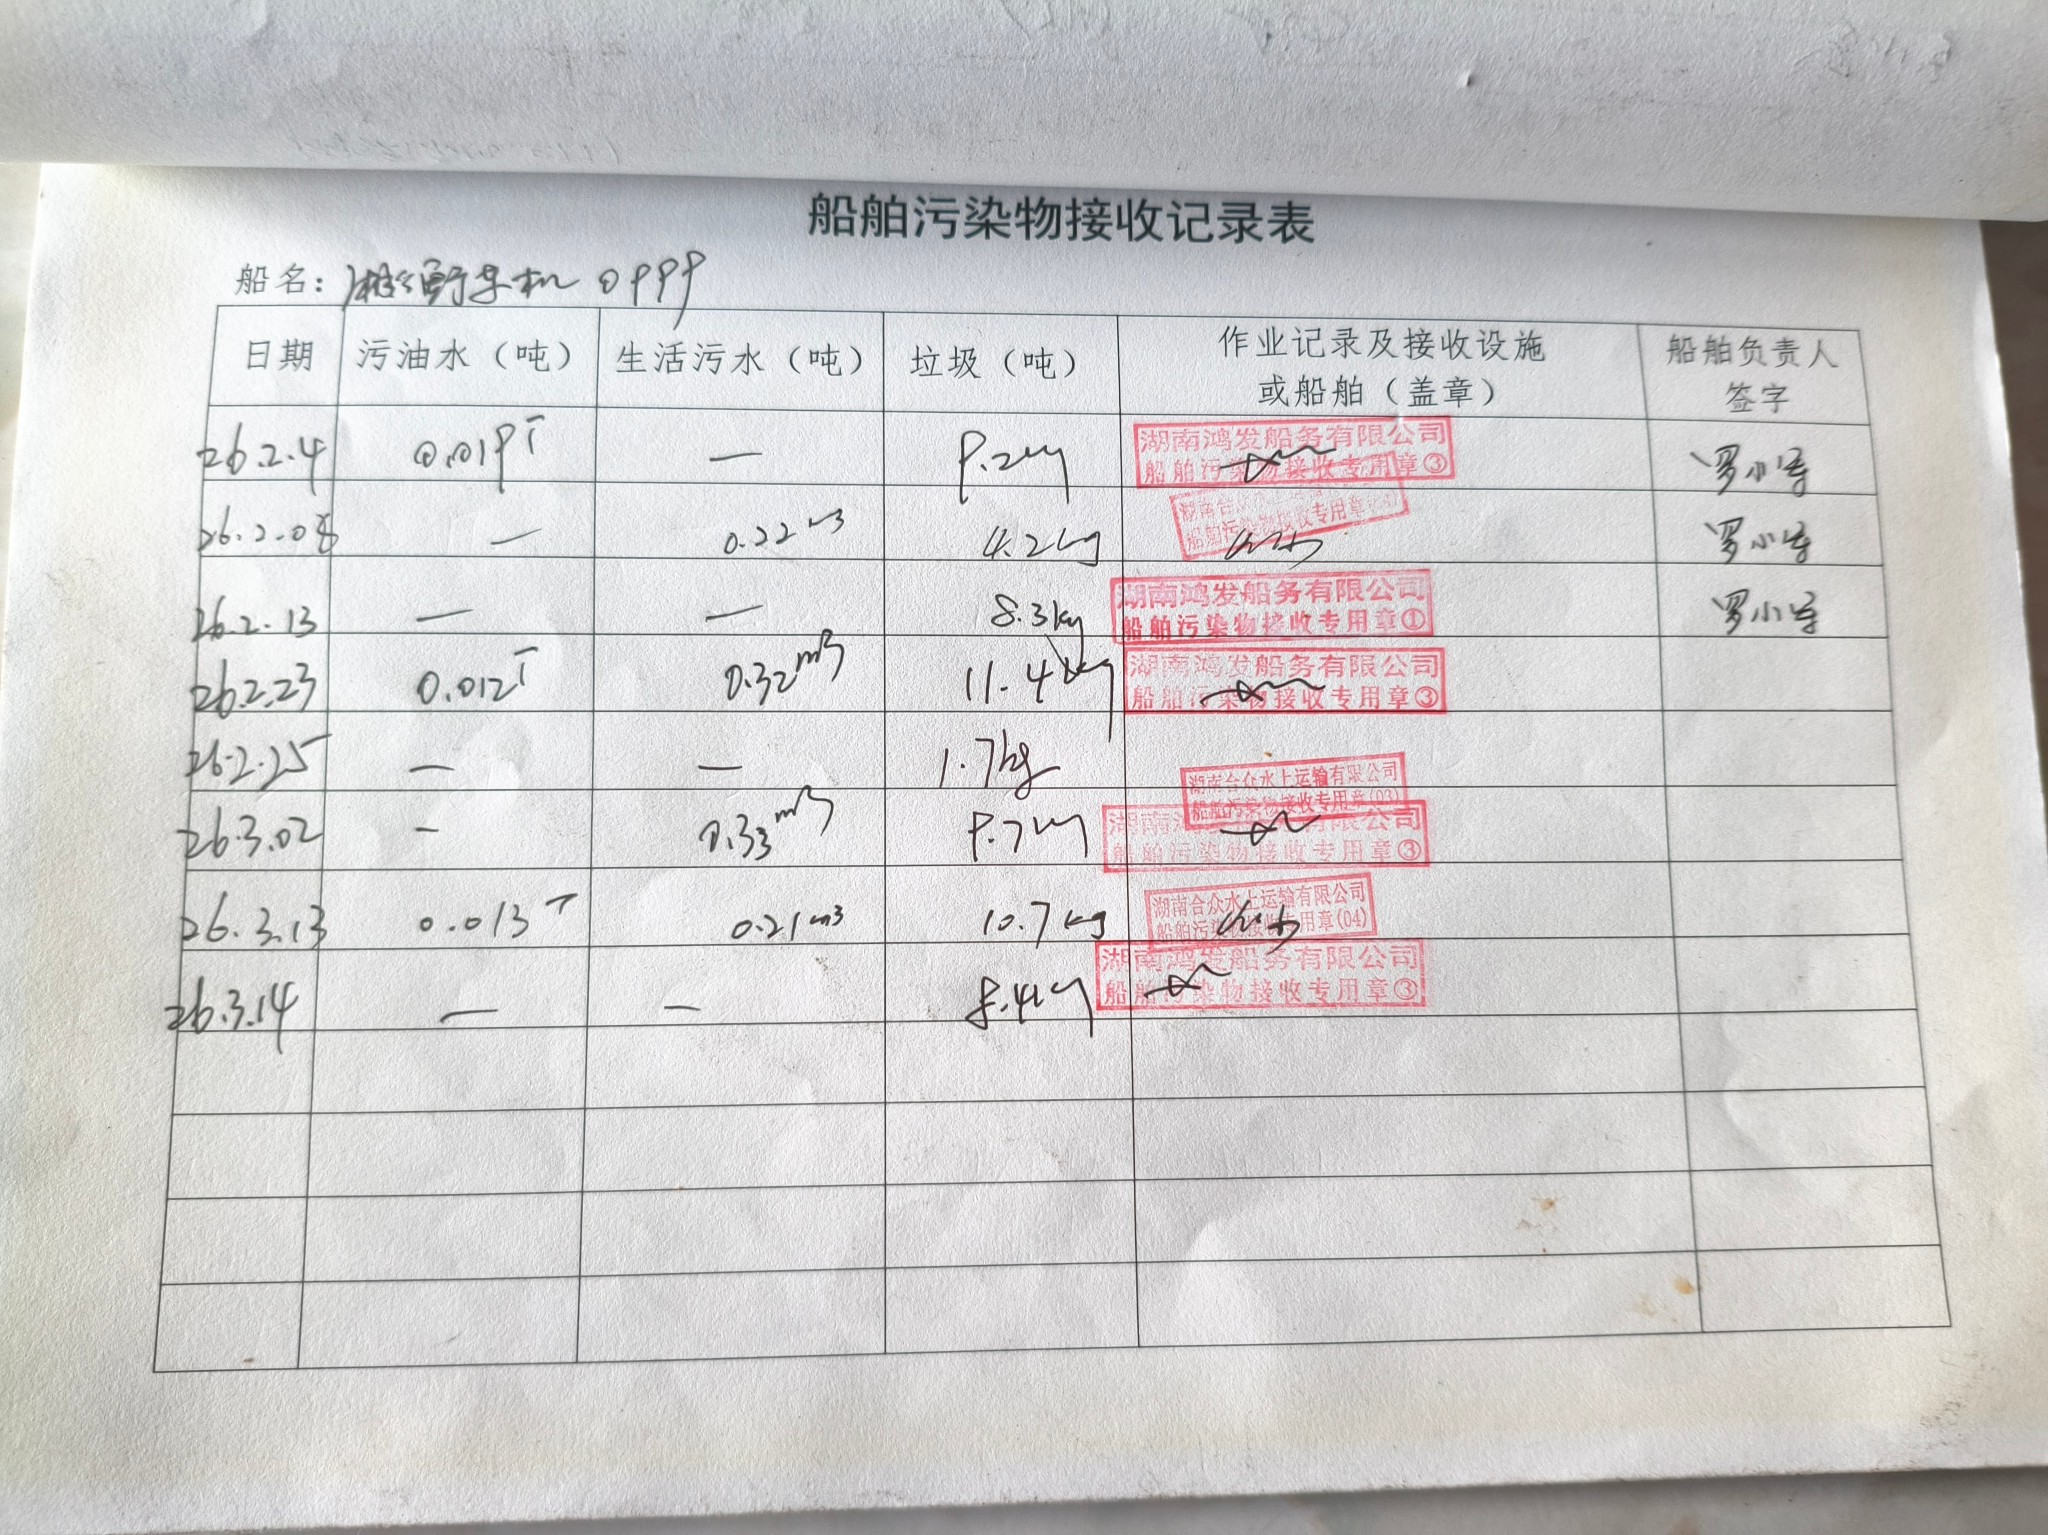 船舶污染物接收记录表
船名： 0999
日期 污油水（吨） 生活污水（吨） 垃圾（吨） 作业记录及接收设施或船舶（盖章） 船舶负责人签字
26.2.4 0.019T — 9.2kg 湖南鸿发船务有限公司 船舶污染物接收专用章③ 罗小
26.2.08 — 0.22m³ 4.2kg 湖南合 船舶污染物接收专用章 罗小
26.2.13 — — 8.3kg 湖南鸿发船务有限公司 船舶污染物接收专用章① 罗小
26.2.23 0.012T 0.32m³ 11.4kg 湖南鸿发船务有限公司 船舶污染物接收专用章③
26.2.25 — — 1.7kg 湖南合众水上运输有限公司 船舶污染物接收专用章(03)
26.3.02 — 0.33m³ 9.7kg 湖南鸿发船务有限公司 船舶污染物接收专用章③
26.3.13 0.013T 0.21m³ 10.7kg 湖南合众水上运输有限公司 船舶污染物接收专用章(04)
26.3.14 — — 8.4kg 湖南鸿发船务有限公司 船舶污染物接收专用章③